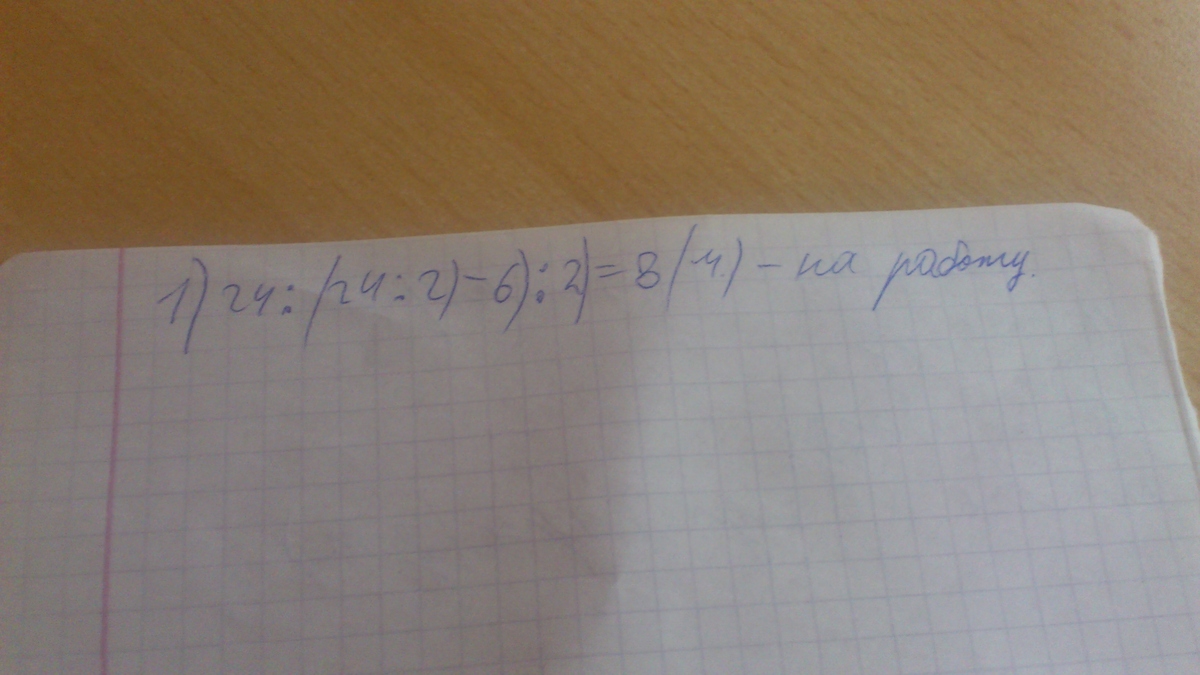 1) 24:(24:2)-6):2)=8(ч.) – на работу.